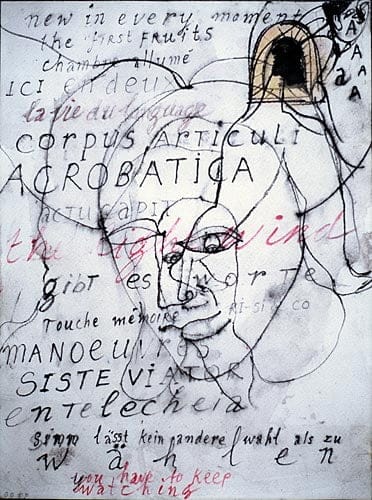 new in every moment
the first FRUITS
chambre allumé
ICI en deu
la vie du language
corpus ARTICULI
ACROBATICA
ACTU CAPIT
the light wind
gibt es worte
RI-SI-CO
Touche mémoire
MANOEUVRES
SISTE VIATOR
enTelecheia
Sinn lässt kein andere wahl als zu
wählen
you have to keep
watching
A
A
A
a
A